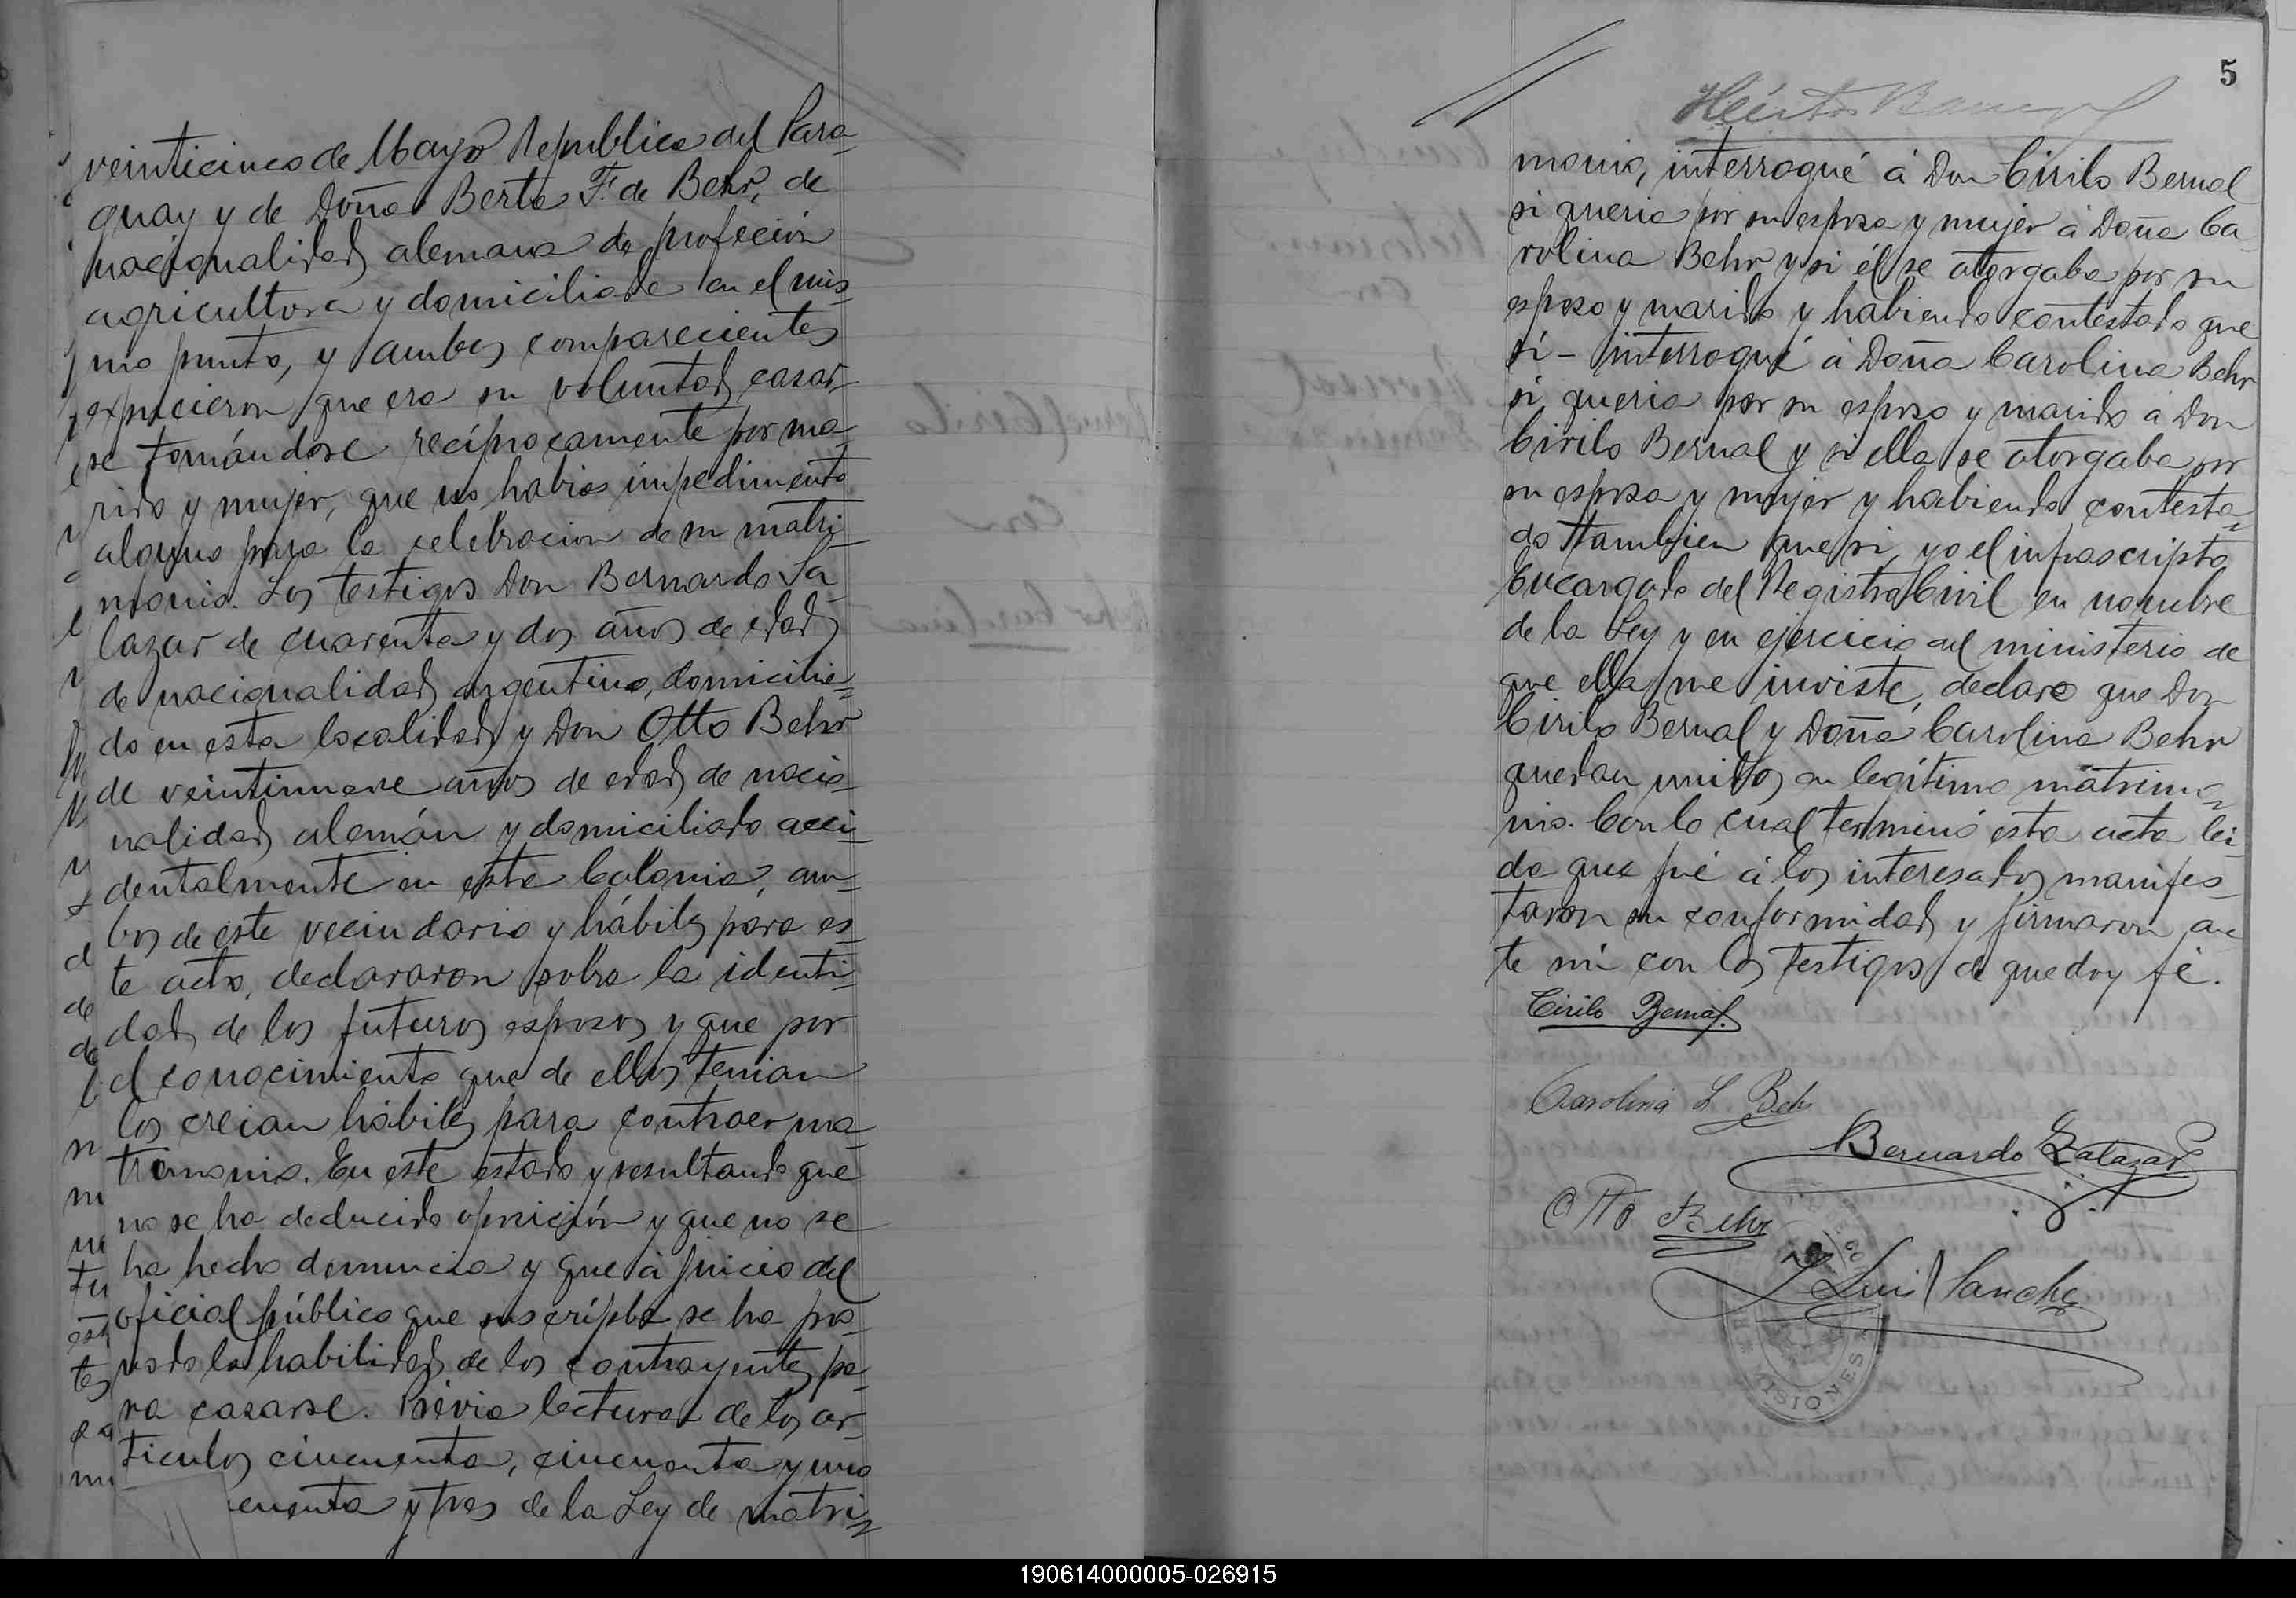 veinticinco de Mayo Republica del Para-
guay y de Doña Berta F. de Behr, de
nacionalidad alemana de profeción
agricultora y domiciliada en el mis-
mo punto, y ambos comparecientes
expucieron que era su voluntad casar-
se tomándose recíprocamente por ma-
rido y mujer, que no habia impedimento
alguno para la celebracion de su matri-
monio. Los testigos Don Bernardo Sa-
lazar de cuarenta y dos años de edad
de nacionalidad argentino, domicilia-
do en esta localidad y Don Otto Behr
de veintinueve años de edad de nacio-
nalidad alemán y domiciliado acci-
dentalmente en esta Colonia, am-
bos de este vecindario y hábiles para es-
te acto, declararon sobre la identi-
dad de los futuros esposos y que por
el conocimiento que de ellos tenian
los creian hábiles para contraer ma-
trimonio. En este estado y resultando que
no se ha deducido oposición y que no se
ha hecho denuncia y que á juicio del
oficial público que suscribe se ha pro-
vado la habilidad de los contrayentes pa-
ra casarse. Prévia lectura de los ar-
ticulos cincuenta, cincuenta y uno
cuenta y tres de la Ley de matri-
5
Héctor
monio, interrogué á Don Cirilo Bernal
si queria por su esposa y mujer á Doña Ca-
rolina Behr y si él se otorgaba por su
esposo y marido y habiendo contestado que
sí - interrogué á Doña Carolina Behr
si queria por su esposo y marido á Don
Cirilo Bernal y si ella se otorgaba por
su esposa y mujer y habiendo contesta-
do tambien que si, yo el infrascripto
Encargado del Registro Civil en nombre
de la Ley y en ejercicio del ministerio de
que ella me inviste, declaro que Don
Cirilo Bernal y Doña Carolina Behr
quedan unidos en legítimo matrimo-
nio. Con lo cual terminó esta acta lei-
da que fué á los interesados manifes-
taron su conformidad y firmaron an
te mi con los testigos de que doy fé.
Cirilo Bernal.
Carolina L Behr
Bernardo Zalazar
Otto Behr
Luis Sanchez
MISIONES
190614000005-026915